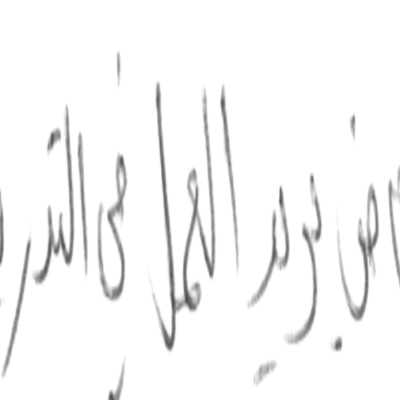 من يريد العمل في التدر